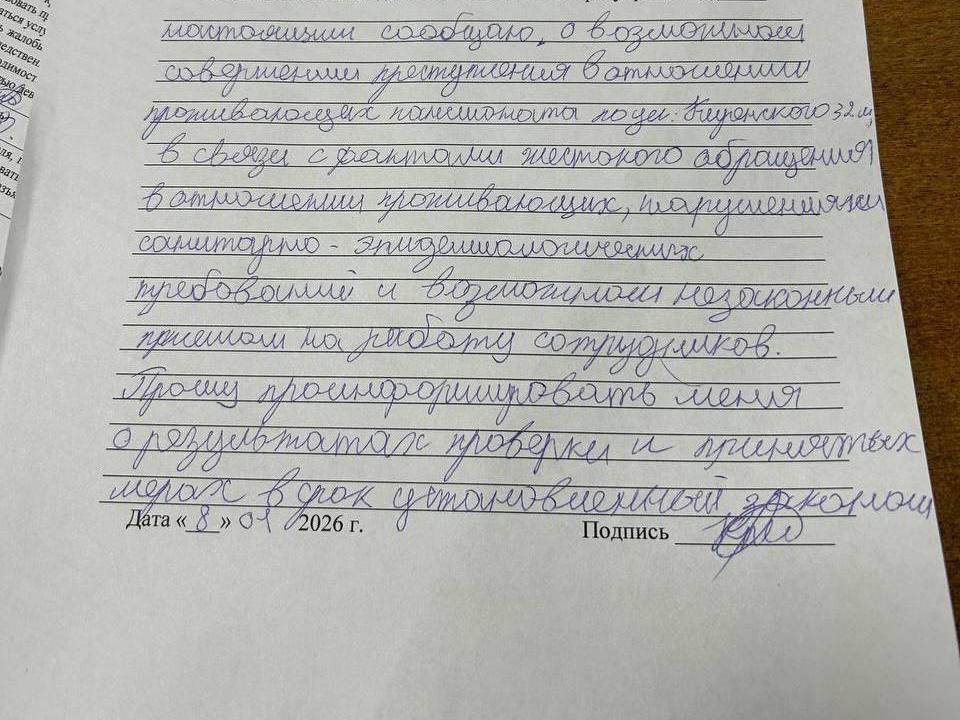 настоящим сообщаю, о возможном
совершении преступления в отношении
проживающих пансионата по адр.: 32
в связи с фактами жестокого обращения
в отношении проживающих, нарушениями
санитарно - эпидемиологических
требований и возможным незаконным
приемом на работу сотрудников.
Прошу проинформировать меня
о результатах проверки и принятых
мерах в срок установленный законом
Дата «8» 01 2026 г. Подпись
жалобы